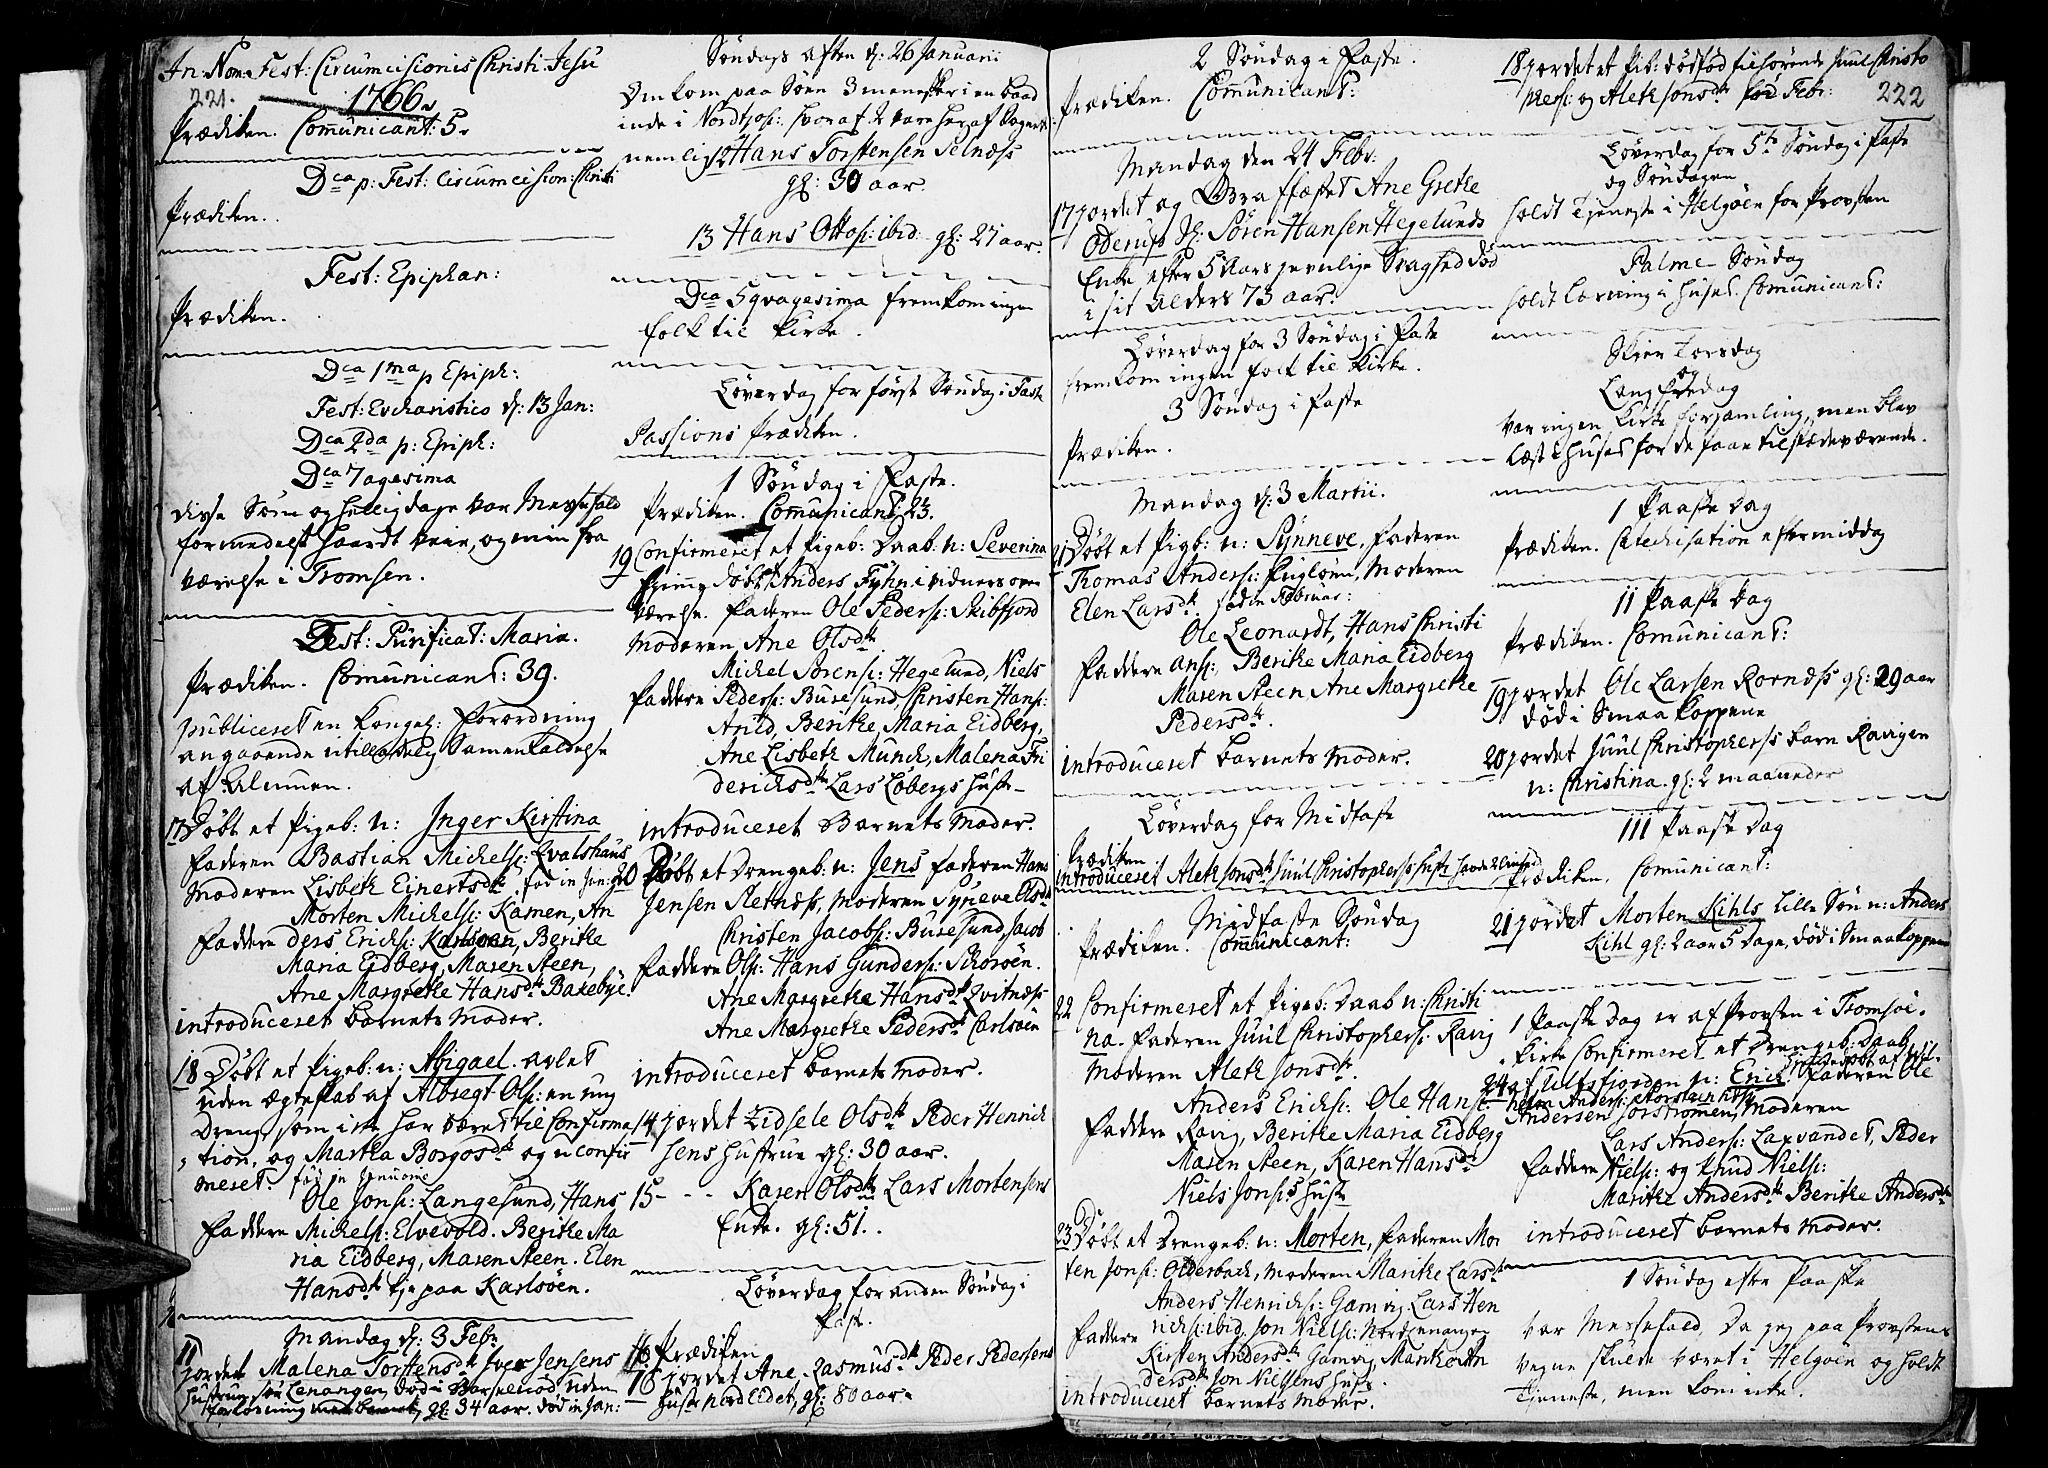 In Nom: Fest: Circumcisionis Christi Jesu
221. 1766.
Prædiken. Communicant: 5.
Dca p: Fest: Circumcision: Christi
Prædiken.
Fest: Epiphan:
Prædiken.
Dca 1ma p Epiph:
Fest: Eucharistico d: 13 Jan:
Dca 2da p: Epiph:
Dca 7agesima
disse Søn og hellig dage var Messefald
formedelst haardt veir, og min fra
værelse i Tromsen.
Fest: Purificat: Maria.
Prædiken. Communicant: 39.
publiceret en kongel: forordning
angaaende utilladelig Samenkaldelse
af Almuen.
17 Døbt et Pigeb: n: Inger Kirstina
faderen Bastian Michels: Qvalshaus
Moderen Lisbeth Einertsdtr fød in Jan:
Morten Michels: Kamen, An
Faddere ders Erichs: Karlsøen, Berithe
Maria Eidberg, Maren Steen,
Ane Margrethe Hansdtr Bakebye.
introduceret barnets Moder.
18 Døbt et Pigeb: n: Abigael. avlet
uden ægteskab af Albregt Ols: en ung
Dreng som icke har været til Confirma
tion, og Martha Borgosdtr og uconfir
meret. fød in Januario
Ole Jons: Langesund, Hans
Faddere Michels: Elvevold. Berithe Ma
ria Eidberg, Maren Steen. Elen
Hansdtr tje paa Karlsøen.
Mandag d: 3 Febr
11 jordet Malena Torstensdtr Iver Jensens
hustrue Lenangen, død i Barselnød uden
forløsning, gl: 34 aar. død in Jan:
Søndags aften d: 26 Januarii
Omkom paa Søen 3 mennesker i en baad
inde i Nordfios: hvoraf 2 vare her af
nemlig 12 Hans Torstensen Selnæss
gl: 30 aar.
13 Hans Ottos: ibid: gl: 27 aar.
Dca 5qvagesima fremkom ingen
folk til Kirke.
Løverdag for først Søndag i Fast
Passions Prædiken.
1 Søndag i Faste.
Prædiken. Communicant: 23.
19 Confirmeret et Pigeb: Daab: n: Severina
hjemmedøbt Anders Fyhn i vidners over
værelse. Faderen Ole Peders: Skibfjord
Moderen Ane Olsdtr
Michel Sørens: Hegelund, Niels
Faddere Peders: Burøsund, Christen Hans:
Anild, Berithe Maria Eidberg,
Ane Lisbeth Munch, Malena Fri
derichsdtr Lars Lobergs Hustr
introduceret Barnets Moder.
20 Døbt et Drengeb: n: Jens faderen Hans
Jensen Sletnæss, moderen Syneve Olsdtr
Christen Jacobs: Burøsund, Jacob
Faddere Ols: Hans Gunders: Skorøen.
Ane Margrethe Hansdtr Qvitnæs:
Ane Margrethe Pedersdtr Carlsøen
introduceret barnets Moder.
14 jordet Zidsele Olsdtr Peder Henrich
sens hustrue gl: 30 aar.
15 - - - Karen Olsdtr Lars Mortensens
Enke. gl: 51.
Løverdag for anden Søndag i
Fast.
Prædiken
16 jordet Ane Rasmusdtr Peder Pedersens
Hustr Nordeidet, gl: 80 aar.
2 Søndag i Faste.
Prædiken. Communicant:
Mandag den 24 Febr:
17 jordet og Graffæstet Ane Grethe
Oderup Sl: Søren Hansen Hegelunds
Enke efter 5 Aars jevnlige Svaghed død
i sit alders 73 aar.
Løverdag for 3 Søndag i Faste
fremkom ingen folk til Kirke.
3 Søndag i Faste
Prædiken.
Mandag d: 3 Martii.
21 Døbt et Pigb: n: Synneve. Faderen
Thomas Anders: Fugløen, Moderen
Elen Larsdtr. fød in Februar:
Ole Leonardt, Hans Christi
Faddere ans:, Berithe Maria Eidberg
Maren Steen, Ane Margrethe
Pedersdtr.
introduceret barnets Moder.
Løverdag for Midfaste
Prædiken
introduceret Aleth Jonsdtr Juul Christophers Hustr
Midfaste Søndag
Prædiken. Communicant:
22 Confirmeret et Pigeb: Daab n: Christi
na. Faderen Juul Christophers: Ravig
Moderen Aleth Jonsdtr.
Anders Erichs: Ole Hans:
Faddere Ravig, Berithe Maria Eidberg
Maren Steen, Karen Hansdtr
Niels Jons:s Hustr
23 Døbt et Drengeb: n: Morten, faderen Mor
ten Jons: Olderbach, moderen Marithe Larsdtr
Anders Henrichs: Gamvig, Lars Hen
Faddere richs: ibid. Jon Niels: Nordlenangen
Kirsten Andersdtr Gamvig, Marithe An
dersdtr Jon Nielsens Hustr.
introduceret barnets Moder.
18 jordet et Pib: dødfød tilhørende Juul Christo
phers: og Aleth Jonsdtr fød Febr: 222
Løverdag for 5te Søndag i Faste
og Søndagen
holdt Tjeneste i Helgøen for Provsten
Palme Søndag
holdt Læsning i Huset. Comunicant:
Skier Torsdag
og
Lang fredag
var ingen kirke forsamling, men blev
læst i huset for de faae tilstædeværende.
1 Paaske Dag
Prædiken. Catechisation eftermiddag
II Paaske Dag
Prædiken. Comunicant:
19 jordet Ole Larsen Kornæss gl: 29 aar
død i Smaa koppene
20 jordet Juul Christophers barn Ravigen
n: Christina. gl: 2 maaneder
III Paaske Dag
Prædiken. Comunicant:
21 jordet Morten Kihls lille Søn n: Anders
Kihl gl: 2 aar 5 Dage, død i Smaakoppene
1 Paaske Dag er af Provsten i Tromsøe
Kirke Confirmeret et Drengeb: Daab
24 af Ulfsfjorden n: Erich. Faderen Ole
Andersen Sørstrømen, Moderen
Lars Anders: Laxvandet, Peder
Faddere Niels: og Knud Niels:
Marithe Andersdtr Berithe Andersdtr
introduceret barnets Moder.
1 Søndag efter Paaske
var Messefald, da jeg paa Provstens
vegne skulde været i Helgøen og holdt
Tjeneste, men kom icke.